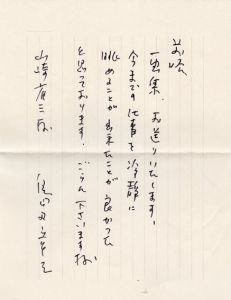 前略
一出集、お送りいたします。
今までの仕事を冷静に
眺めることが出来たことが良かった
と思っております。ごらん下さいませ
山崎省三様